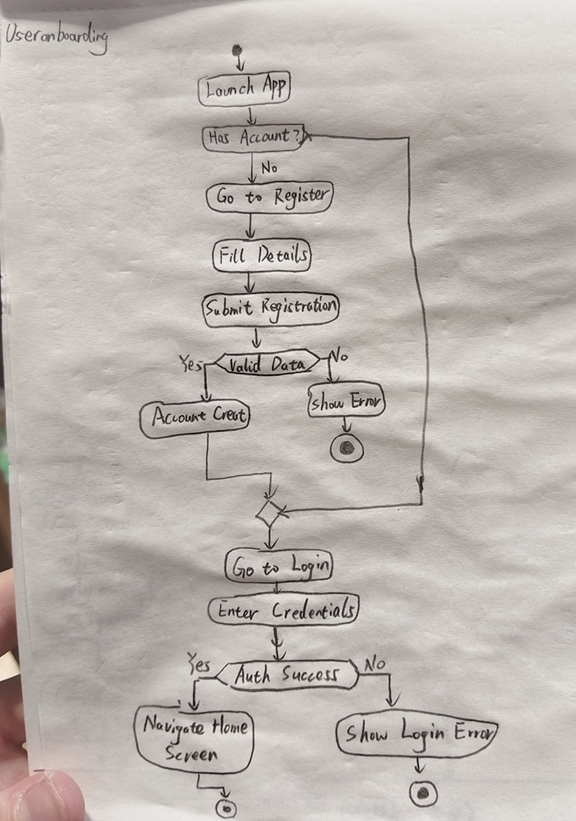 Useronboarding
Launch App
Has Account?
No
Go to Register
Fill Details
Submit Registration
Yes
Valid Data
No
Account Creat
show Error
Go to Login
Enter Credentials
Yes
Auth Success
No
Navigate Home
Screen
Show Login Error